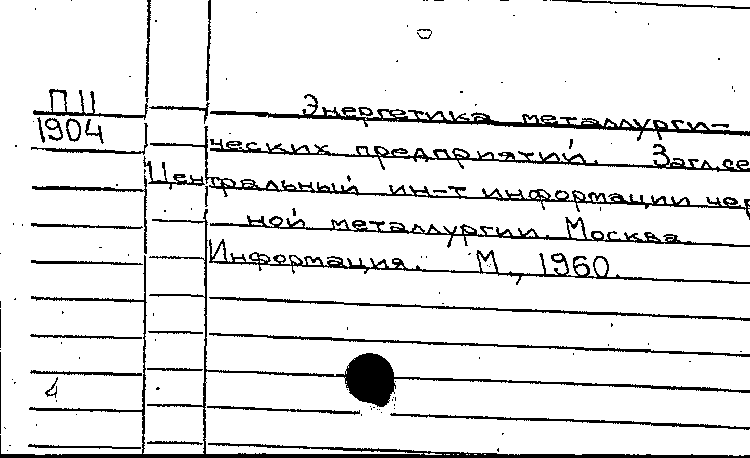 П II
1904
Энергетика металлурги-
ческих предприятий. Загл.се
Центральный ин-т информации чер
ной металлургии. Москва.
Информация. М., 1960.